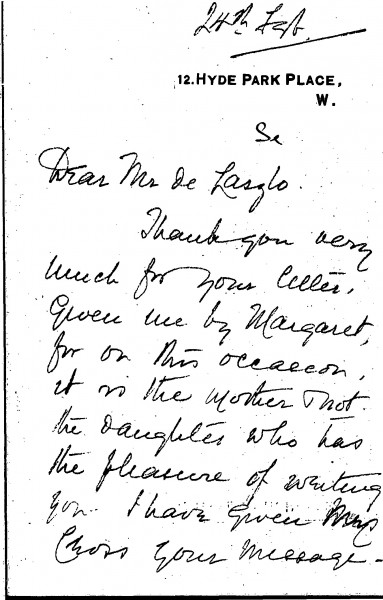 24th Sept.
12. HYDE PARK PLACE,
W.
Se
Dear Mr de Laszlo.
Thank you very
much for your letter,
Given me by Margaret,
for on this occasion,
it is the mother & not
the daughter who has
the pleasure of writing
you I have given Mrs
Cross your message -